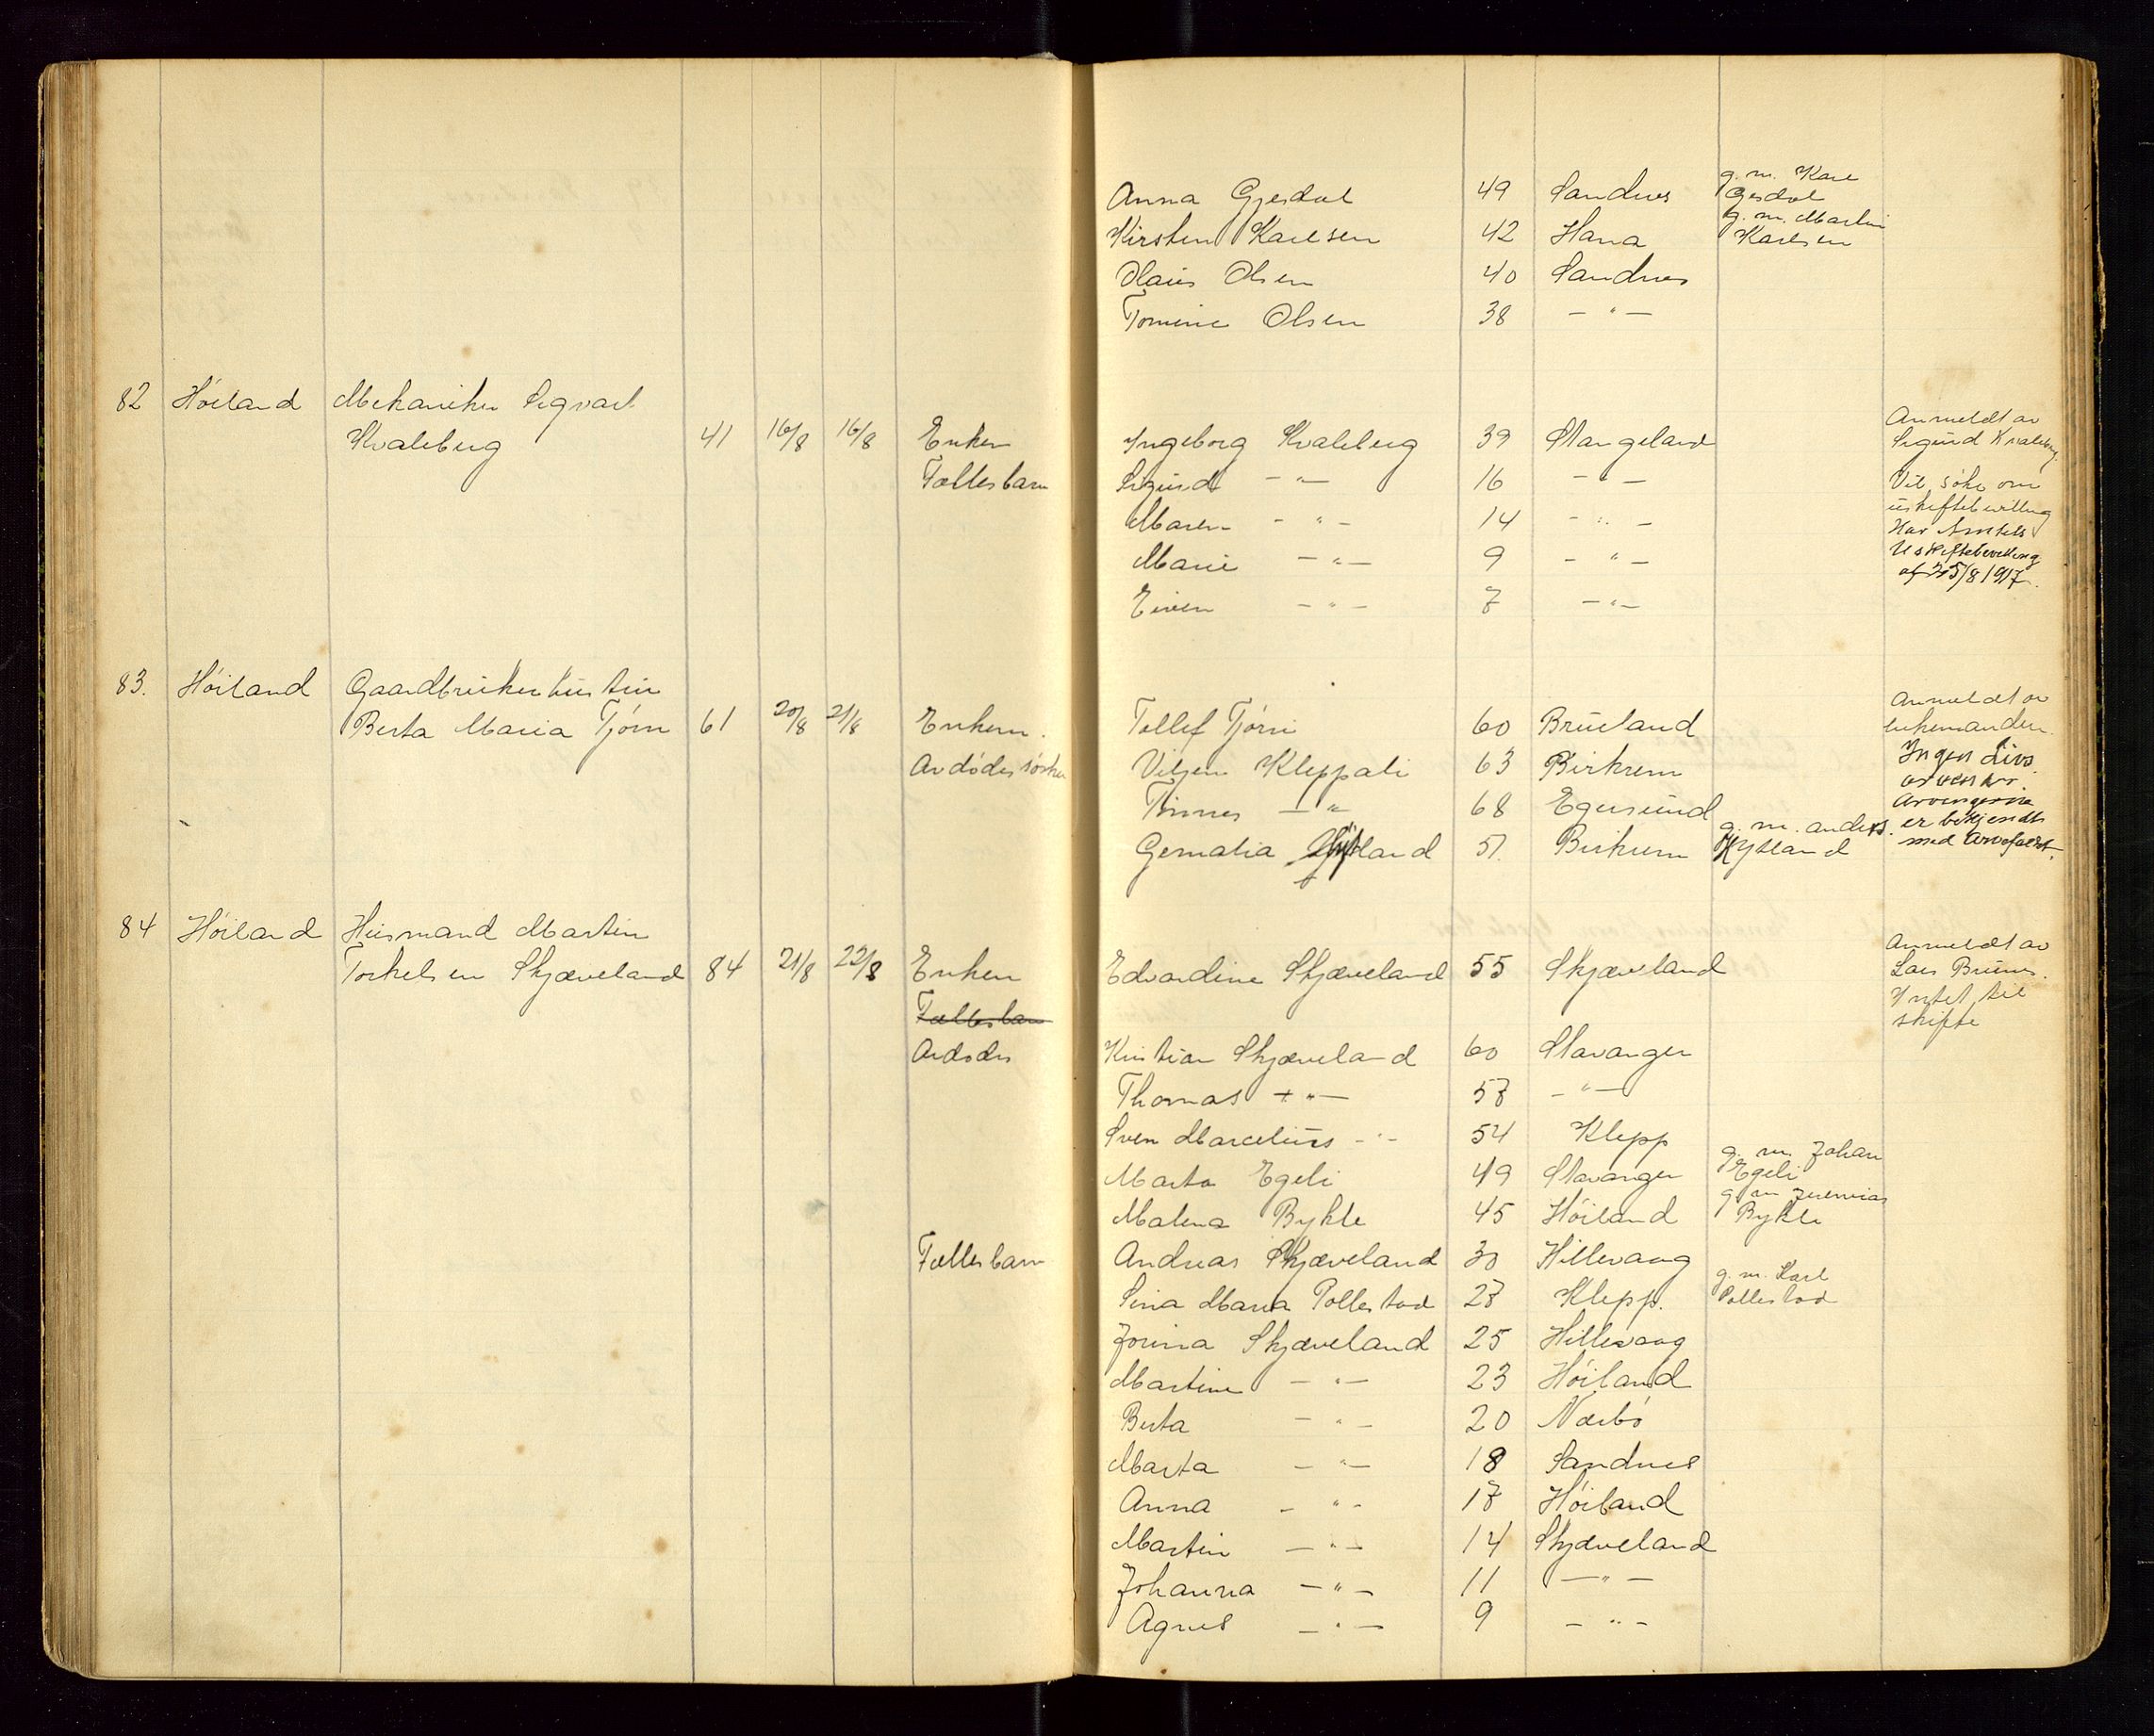 Anna Gjesdal 49 Sandnes g. m. Karl Gjesdal
Kirsten Karlsen 42 Hana g. m. Martin Karlsen
Olaus Olsen 40 Sandnes
Tomine Olsen 38 — " —
82 Höiland Mekaniker Sigvart
Kvaleberg 41 16/8 16/8 Enken Ingeborg Kvaleberg 39 Stangeland Anmeldt av Sigurd Kvaleberg.
Fællesbarn Sigurd — " — 16 — " — Vil söke om
Maren — " — 14 — " — uskiftebevilling
Marie — " — 9 — " — Har Amtets Uskiftebevilling
Eiven — " — 7 — " — af 25/8 1917.
83. Höiland Gaardbrukerhustru
Berta Maria Tjörn 61 20/8 21/8 Enkem. Tollef Tjörn 60 Brueland Anmeldt av enkemanden.
Avdödes söskn Viljem Kleppali 63 Birkrem Ingen Livsarvenger.
Tönnes — " — 68 Egersund Arvingerne
Gematia Hytland 51. Birkrem g. m. Anders Hytland er bekjendt med Arvefaldet.
84 Höiland Husmand Martin
Torkelsen Skjæveland 84 21/8 22/8 Enken Edvardine Skjæveland 55 Skjæveland Anmeldt av Lars Brunes.
Fællesbarn Intet til skifte
Avdødes Kristian Skjæveland 60 Stavanger
Thomas — " — 57 — " —
Sven Marcelius — " — 54 Klepp
Marta Egeli 49 Stavanger g. m. Johan Egeli
Malena Bykle 45 Höiland g. m. Jeremias Bykle
Fællesbarn Andreas Skjæveland 30 Hillevaag
Sina Maria Pollestad 27 Klepp. g. m. Karl Pollestad
Jorina Skjæveland 25 Hillevaag
Martine — " — 23 Höiland
Berta — " — 20 Nærbö
Marta — " — 18 Sandnes
Anna — " — 17 Höiland
Martin — " — 14 Skjæveland
Johanna — " — 11 — " —
Agnes — " — 9 — " —